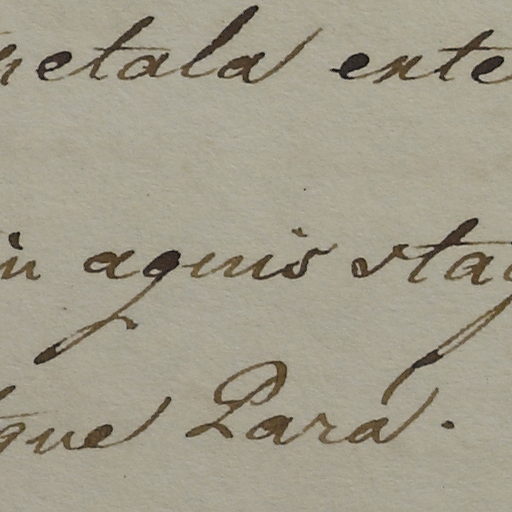 petala exte
in aquis stag
que Pará.